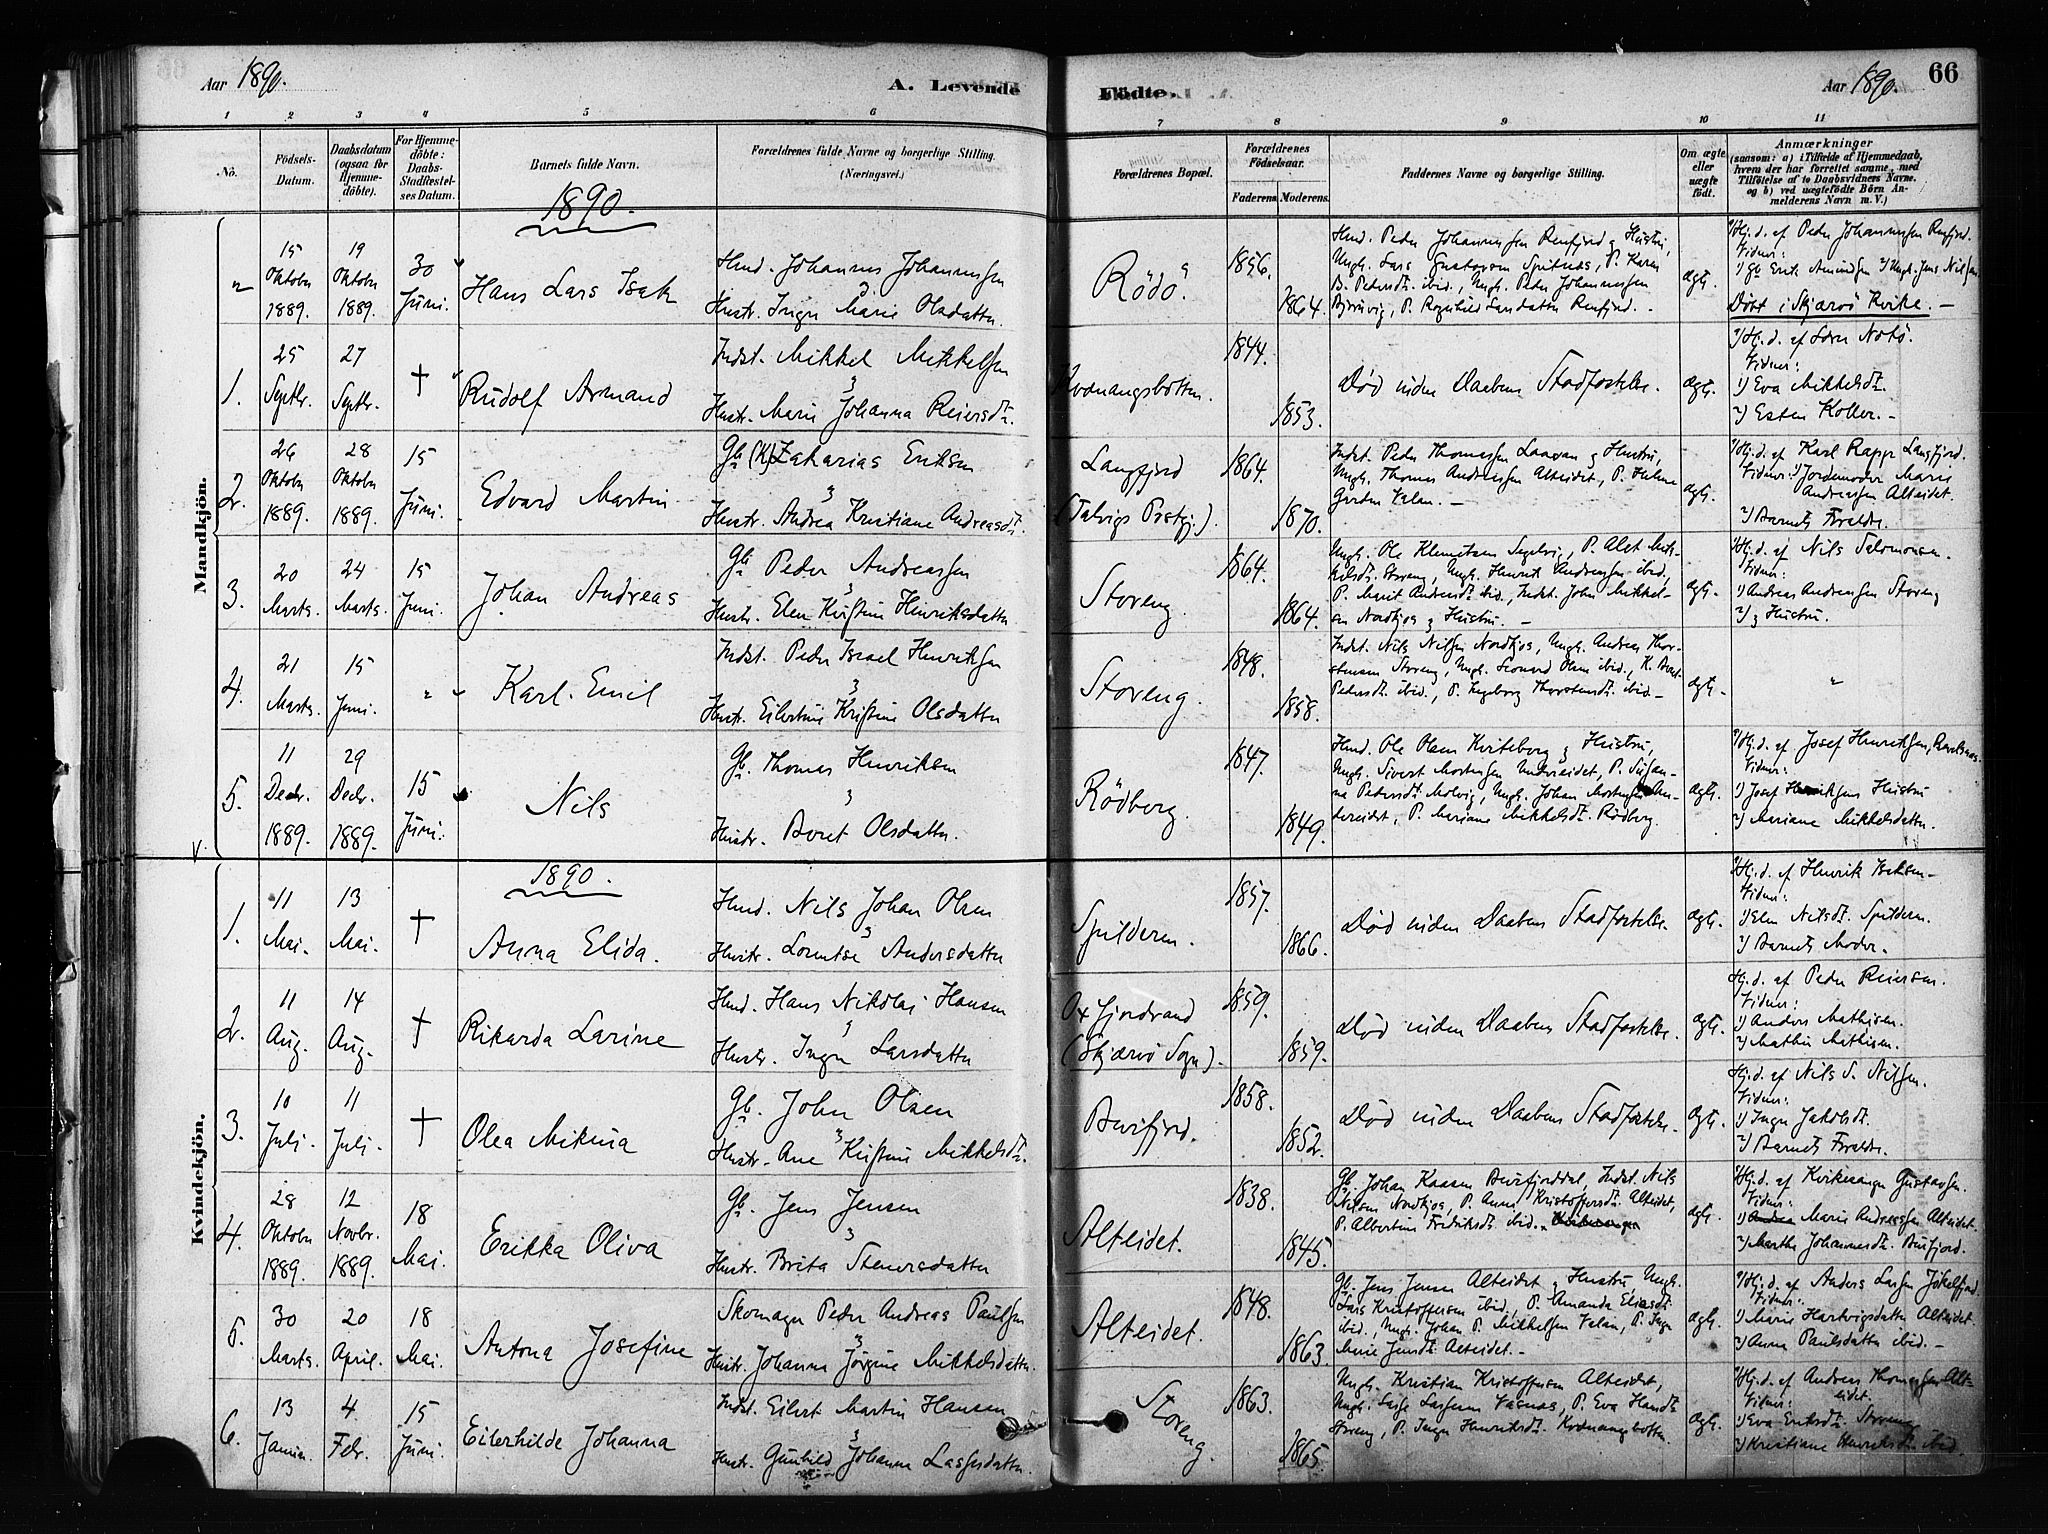 Aar 1890.
A. Levende
Fødte.
Aar 1890.
66
1 2 3 4 5 6 7 8 9 10 11
No.
Födsels-Datum.
Daabsdatum (ogsaa for Hjemmedöbte).
For Hjemmedöbte: Daabs-Stadfæstelses Datum.
Barnets fulde Navn.
Forældrenes fulde Navne og borgerlige Stilling.
(Næringsvei.)
Forældrenes Bopæl.
Forældrenes Födselsaar.
Faderens. Moderens.
Faddernes Navne og borgerlige Stilling.
Om ægte eller uægte födt.
Anmærkninger
(saasom: a) i Tilfælde af Hjemmedaab, hvem der har forrettet samme, med Tilföielse af to Daabsvidners Navne. og b) ved uægtefödte Börn Anmelderens Navn m. V.)
Mandkjön.
1890.
" 15 Oktober 1889. 19 Oktober 1889. 30 Juni. Hans Lars Isak
Hmd. Johannes Johannessen & Hustr. Inger Marie Olsdatter
Rödö. 1856. 1864.
Hmd. Peder Johannessen Reinfjord & Hustru,
Ungk. Lars Gustavsen Spitnæs, P. Karen
B. Pedersdt. ibid., Ungk. Peder Johannessen
ægte.
Hj. d. af Peder Johannessen Reinfjord.
Vidner:
Döbt i Skjærvö Kirke. –
1. 25 Septbr. 27 Septbr. † Rudolf Armand
Indst. Mikkel Mikkelsen & Hustr. Marie Johanna Reiersdt.
Kvænangsbotten. 1844. 1853.
Död inden Daabens Stadfæstelse. ægte.
Hj. d. af Lars Notö.
Vidner:
1) Eva Mikkelsdt.
2) Esten Koller. –
2. 26 Oktober 1889. 28 Oktober 1889. 15 Juni. Edvard Martin
Gb. (K) Zakarias Eriksen & Hustr. Andrea Kristiane Andreasdt.
Langfjord (Talvigs Prstgj.). 1864. 1870.
Indst. Peder Thomassen Laagan & Hustru,
Ungk. Thomas Andreassen Alteidet, P. Helene
ægte.
Hj. d. af Karl Rapp Langfjord.
Vidner: 1) Jordemoder Marie
Andreassen Alteidet.
2) Barnets Forældre.
3. 20 Marts. 24 Marts. 15 Juni. Johan Andreas
Gb. Peder Andreassen & Hustr. Elen Kristine Henriksdatter
Storeng. 1864. 1864.
Ungk. Ole Klemetsen Segelvig, P. Alet Mik-
kelsdt. Storeng, Ungk. Henrik Andreassen ibid.,
P. Marit Andersdt. ibid., Indst. John Mikkel-
sen Nordkjos & Hustru. –
ægte.
Hj. d. af Nils Salomonsen.
Vidner:
1) Andreas Andreassen Storeng
2) & Hustru.
4. 21 Marts. 15 Juni. " Karl Emil
Indst. Peder Israel Henriksen & Hustr. Eilertine Kristine Olsdatter
Storeng. 1848. 1858.
Indst. Nils Nilsen Nordkjos, Ungk. Andreas Thor-
stensen Storeng, Ungk. Leonard Olsen ibid., K. Beret
Pedersdt. ibid., P. Ingeborg Thorstensdt. ibid –
ægte. "
5. 11 Decbr. 1889. 29 Decbr. 1889. 15 Juni. Nils
Gb. Thomas Henriksen & Hustr. Beret Olsdatter.
Rödberg. 1847. 1849.
Hmd. Ole Olsen Kviteberg & Hustru,
Ungk. Sivert Mortensen Undereidet, P. Susan-
na Pedersdt. Molvig, Ungk. Johan Mortensen Un-
dereidet, P. Mariane Mikkelsdt. Rödberg.
ægte.
Hj. d. af Josef Henriksen,
Vidner:
1) Josef Henriksens Hustru
2) Mariane Mikkelsdatter.
Kvindekjön.
1890.
1. 11 Mai. 13 Mai. † Anna Elida.
Hmd. Nils Johan Olsen & Hustr. Lorentse Andersdatter
Spilderen. 1857. 1866.
Död inden Daabens Stadfæstelse. ægte.
Hj. d. af Henrik Isaksen –
Vidner:
1) Elen Nilsdt. Spilderen.
2) Barnets Moder.
2. 11 Aug. 14 Aug. † Rikarda Larine
Hmd. Hans Nikolai Hansen & Hustr. Inger Larsdatter
Oxfjordvand (Skjærvö Sogn). 1859. 1859.
Död inden Daabens Stadfæstelse. ægte.
Hj. d. af Peder Reiersen.
Vidner:
1) Anders Mathisen.
2) Mathis Mathisen.
3. 10 Juli. 11 Juli. † Olea Mikina
Gb. John Olsen & Hustr. Ane Kristine Mikkelsdt.
Burfjord. 1858. 1852.
Död inden Daabens Stadfæstelse. ægte.
Hj. d. af Nils S. Nilsen.
Vidner:
1) Inger Jakobsdt.
2) Barnets Forældre.
4. 28 Oktober 1889. 12 Novbr. 1889. 18 Mai. Erikka Oliva
Gb. Jens Jensen & Hustr. Brita Steensdatter
Alteidet. 1838. 1845.
Gb. Johan Kaasen Burfjorddal, Indst. Nils
Nilsen Nordkjos, P. Anne Kristoffersdt. Alteidet,
P. Albertine Fredriksdt. ibid.
ægte.
Hj. d. af Kirkesanger Gustavsen.
Vidner:
1) Marie Andreassen Alteidet.
2) Marthe Johannesdt. Burfjord.
5. 30 Marts. 20 April. 18 Mai. Antona Josefine
Skomager Peder Andreas Paulsen & Hustr. Johanna Jörgine Mikkelsdatter.
Alteidet. 1848. 1863.
Gb. Jens Jensen Alteidet & Hustru, Ungk.
Lars Kristoffersen ibid., P. Amanda Eliasdt.
ibid., Ungk. Johan P. Mikkelsen Valan, P. Inger
Marie Jensdt. Alteidet. –
ægte.
Hj. d. af Anders Larsen Jökelfjord.
Vidner:
1) Marie Hartvigsdatter Alteidet.
2) Anna Paulsdatter ibid. –
6. 13 Januar. 4 Febr. 15 Juni. Eilerhilde Johanna
Indst. Eilert Martin Hansen & Hustr. Gunhild Johanna Lassesdatter.
Storeng. 1863. 1865.
Ungk. Kristian Kristoffersen Alteidet,
Ungk. Lasse Lassesen Vasnæs, P. Eva Hansdt.
Storeng, P. Inger Henriksdt. Kvænangsbotten.
ægte.
Hj. d. af Andreas Thomassen Alt-
eidet.
Vidner:
1) Eva Eriksdt. Storeng
2) Kristiane Henriksdt. ibid.